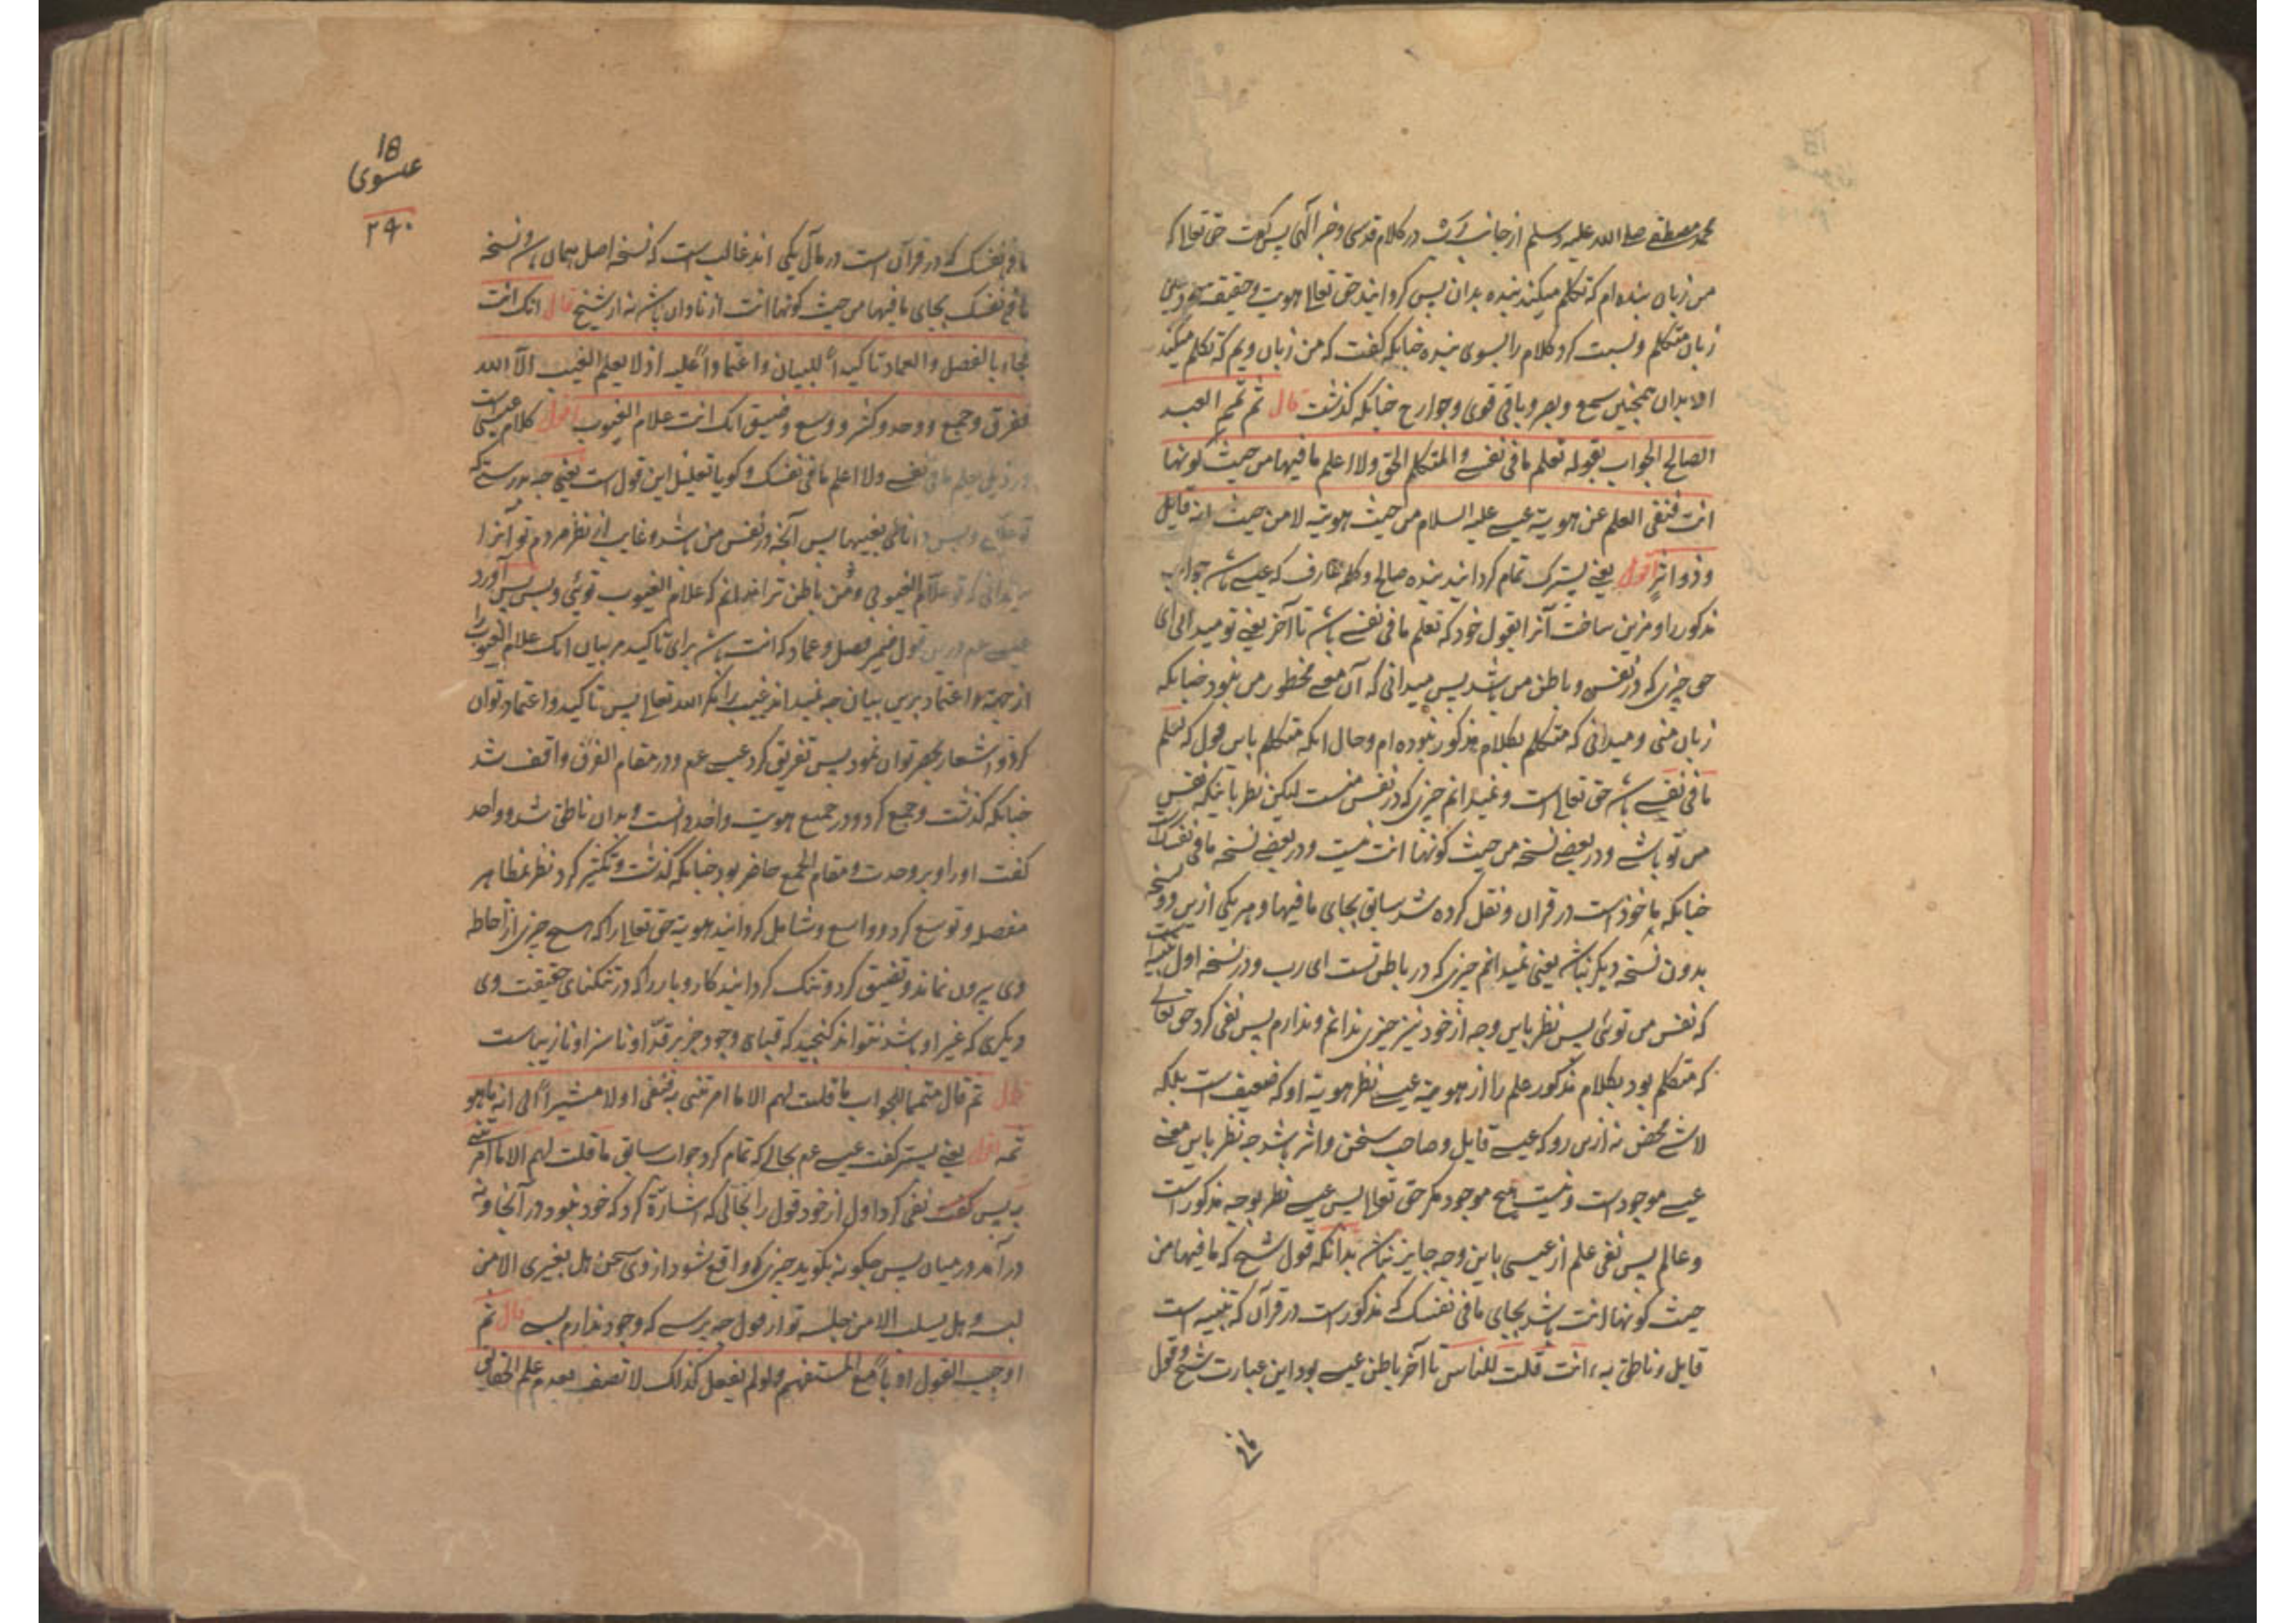 محمد مصطفی صلی الله علیه وسلم از جانب رب در کلام قدسی و خبر الهی پس گفت حق تعالی که
من زبان بنده ام که تکلم میکند بنده بدان پس گردانید حق تعالی هویت و حقیقت
زبان متکلم و نسبت کرد کلام را بسوی بنده چنانکه گفت که من زبان ویم که تکلم میکند
الا بدان همچنین سمع و بصر و باقی قوی و جوارح چنانکه گذشت قال ثم تمم العبد
الصالح الجواب بقوله تعلم ما فی نفسی والمتکلم الحق ولا اعلم ما فیها من حیث کونها
انت فنفی العلم عن هویة عیسی علیه السلام من حیث هویته لا من حیث انه قایل
و ذو اثر اقول یعنی پسترک تمام گردانید بنده صالح و کلمه عارف که عیسی باشد جواب
مذکور را و مزین ساخت آنرا بقول خود که تعلم ما فی نفسی باشد تا آخر یعنی تو میدانی ای
حق چیزی که در نفس و باطن من باشد پس میدانی که آن معنی مخطور من نبود چنانکه
زبان منی و میدانی که متکلم بکلام مذکور نبوده ام و حال انکه متکلم باین قول که تعلم
ما فی نفسی باشد حق تعالی است و نمیدانم چیزی که در نفس منست لیکن نظر باینکه نفس
من تو باشی و در بعضی نسخه من حیث کونها انت نیست و در بعضی نسخه ما فی نفسک است
چنانکه ماخوذ است در قران و نقل کرده شد سابق بجای ما فیها و هر یکی ازین دو نسخه
بدون نسخه دیگر نباشد یعنی نمیدانم چیزی که در باطن تست ای رب و در نسخه اول تنبیه است
که نفس من توئی پس نظر باین وجه از خود نیز چیزی ندانم و ندارم پس نفی کرد حق تعالی
که متکلم بود بکلام مذکور علم را از هویة عیسی نظر بهویة او که ضعیف است بلکه
لا شیٔ محض نه ازین رو که عیسی قایل و صاحب سخن و اثر باشد چه نظر باین معنی
عیسی موجود است و نیست هیچ موجود مگر حق تعالی پس عیسی نظر بوجه مذکور است
و عالم پس نفی علم از عیسی باین وجه جایز نباشد بدانکه قول شیخ که ما فیها من
حیث کونها انت باشد بجای ما فی نفسک که مذکور است در قرآن که تنبیه است
قایل و ناطق به ءانت قلت للناس تا آخر باطن عیسی بود این عبارت شیخ و قول
ما فی
18
عیسوی
۲۹۰
ما فی نفسک که در قرآن است در مآل یکی اند غالب است که نسخه اصل همان باشد و نسخه
ما فی نفسک بجای ما فیها من حیث کونها انت از ناوان باشد نه از شیخ قال انک انت
فجاء بالفصل والعماد تاکیداً للبیان واعتماداً علیه اذ لا یعلم الغیب الا الله
ففرق وجمع ووحد وکثر ووسع وضیق انک انت علام الغیوب اقول کلام عیسی است
در ذیل تعلم ما فی نفسی ولا اعلم ما فی نفسک و گویا تعلیل این قول است یعنی چه بدرستی که
تو علامی و بس دانائی بغیبها پس آنچه در نفس من باشد و غایب از نظر مردم تو آنرا
میدانی که تو علام الغیوبی و من باطن ترا ندانم که علام الغیوب توئی و بس پس آورد
عیسی عم درین قول ضمیر فصل و عماد که انت باشد برای تاکید مر بیان انک علام الغیوب را
از جهت اعتماد برین بیان چه نمیداند غیب را مگر الله تعالی پس تاکید و اعتماد توان
کرد و اشعار بحصر توان نمود پس تفریق کرد عیسی عم و در مقام الفرق واقف شد
چنانکه گذشت و جمع کرد و در جمیع هویت واحد دانست و بدان ناطق شد و واحد
گفت او را و بر وحدت و مقام الجمع حاضر بود چنانکه گذشت و تکثیر کرد نظر بمظاهر
مفصله و توسع کرد و واسع و شامل گردانید هویة حق تعالی را که هیچ چیزی از احاطه
وی بیرون نماند و تضییق کرد و تنگ گردانید کار و بار را که در تنگنای حقیقت وی
دیگری که غیر او باشد نتواند گنجید که قبای وجود جز بر قد او نا سزا و نازیباست
قال ثم قال متمما للجواب ما قلت لهم الا ما امرتنی به فنفی اولا مشیراً الی انه ما هو
ثمه اقول یعنی پستر گفت عیسی عم بحالی که تمام کرد جواب سابق ما قلت لهم الا ما امرتنی
به پس گفت نفی کرد اول از خود قول را بحالی که اشارة کرد که خود نبود در آنجا و نه
در آمد در میان پس چگونه بگوید چیزی که واقع شود از وی سخن هل بغیری الا من
لیسه وهل یسلب الا من جلسه تو از قول چه پرسی که وجود ندارم پس قال ثم
اوجب القول ادباً مع المستفهم ولو لم یفعل کذلک لاتصف بعدم علم الحقایق